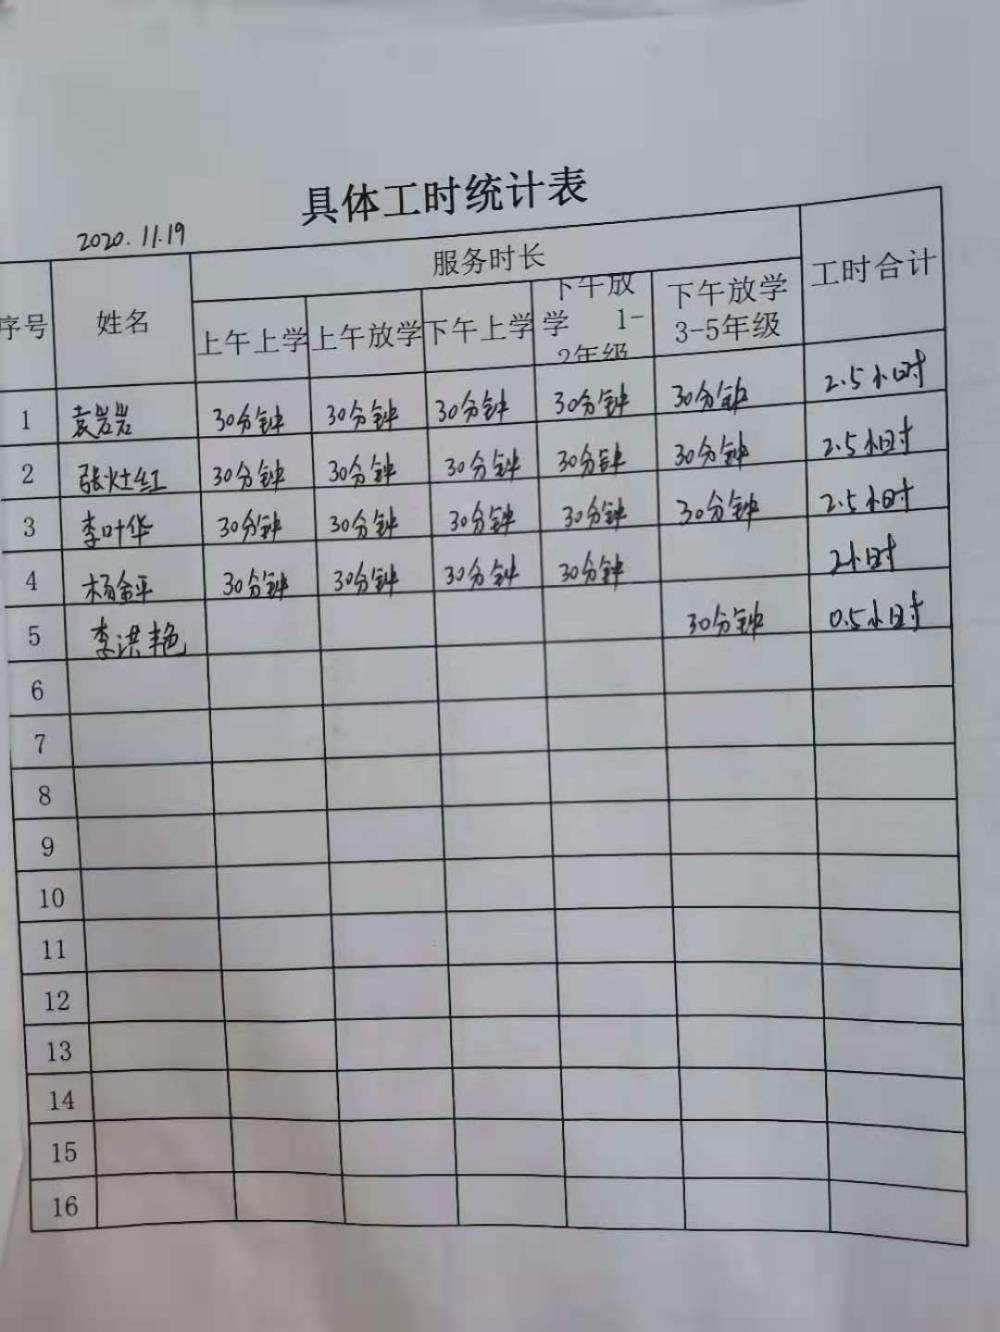 具体工时统计表
2020.11.19
序号 姓名 服务时长 工时合计
上午上学 上午放学 下午上学 下午放学 1-2年级 下午放学 3-5年级
1 袁岩岩 30分钟 30分钟 30分钟 30分钟 30分钟 2.5小时
2 张灶红 30分钟 30分钟 30分钟 30分钟 30分钟 2.5小时
3 李叶华 30分钟 30分钟 30分钟 30分钟 30分钟 2.5小时
4 杨金平 30分钟 30分钟 30分钟 30分钟 2小时
5 李洪艳 30分钟 0.5小时
6
7
8
9
10
11
12
13
14
15
16